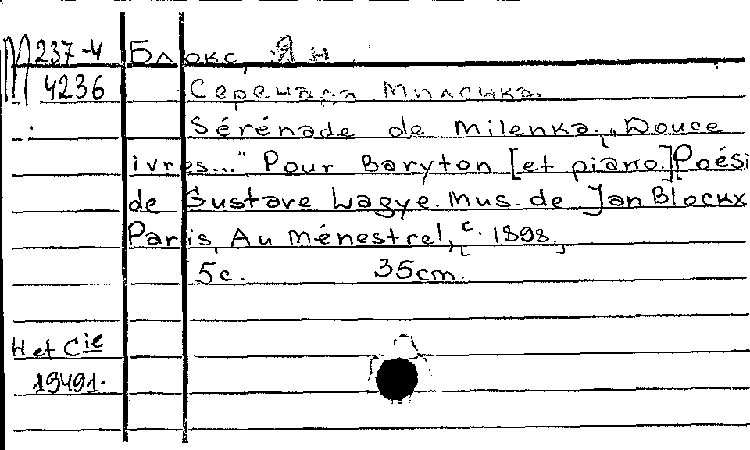 М 237-4 Блокс, Ян.
4236 Серенада Миленка.
Sérénade de Milenka. „Douce
ivres..." Pour Baryton [et piano] Poési
de Gustave Lagye. Mus. de Jan Blockx
Paris, Au Ménestrel, c. 1898,
5c. 35cm.
H et Cie
19491.